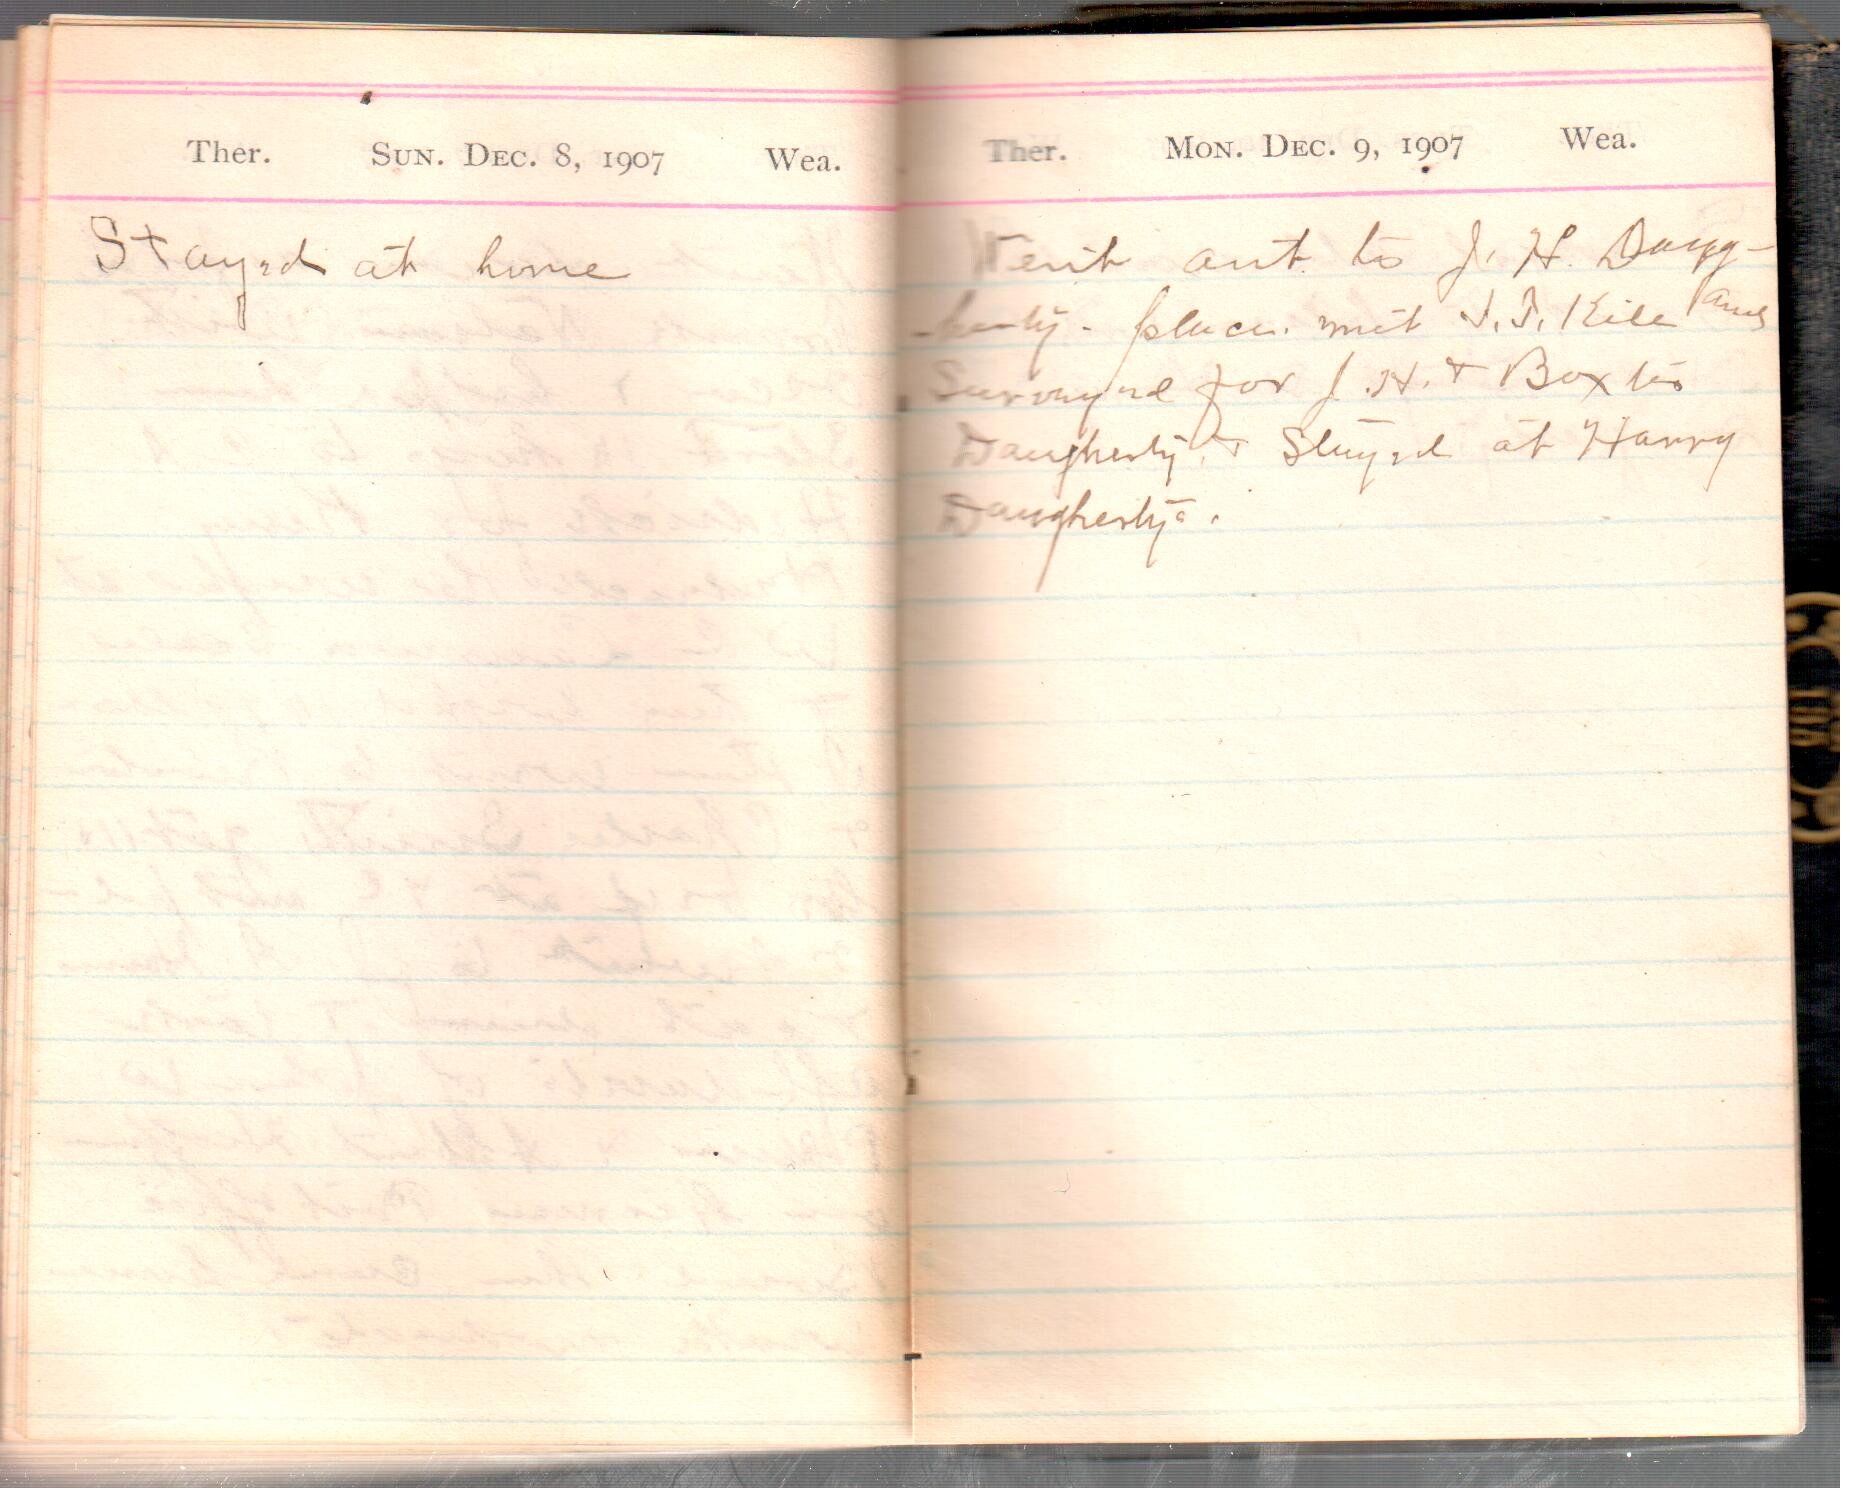 Ther. Sun. Dec. 8, 1907 Wea.
Stayed at home
Ther. Mon. Dec. 9, 1907 Wea.
Went out to J. H. Daugh-
herty. place. met J. J. and
Surveyed for J. H. & Box
Daugherty. & Stayed at Harry
Daughertys.